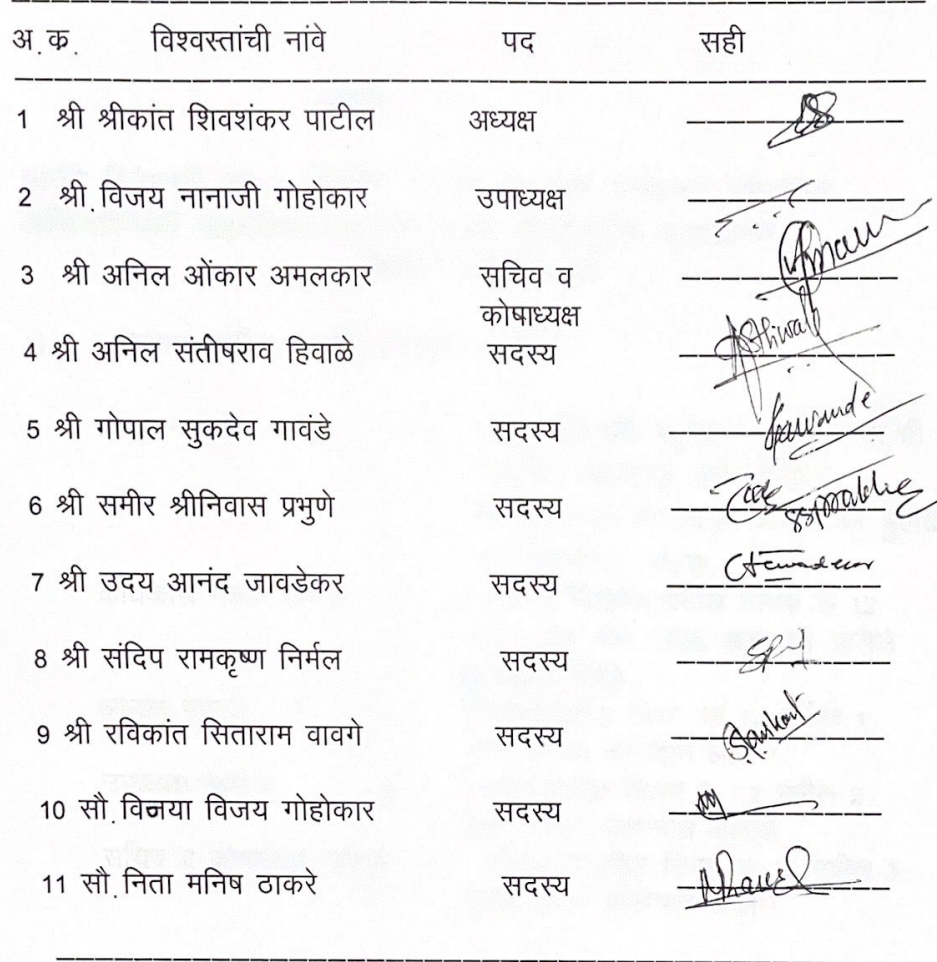 अ.क्र. विश्वस्तांची नांवे पद सही
1 श्री श्रीकांत शिवशंकर पाटील अध्यक्ष
2 श्री विजय नानाजी गोहोकार उपाध्यक्ष
3 श्री अनिल ओंकार अमलकार सचिव व
कोषाध्यक्ष
4 श्री अनिल संतोषराव हिवाळे सदस्य
5 श्री गोपाल सुकदेव गावंडे सदस्य
6 श्री समीर श्रीनिवास प्रभुणे सदस्य
7 श्री उदय आनंद जावडेकर सदस्य
8 श्री संदिप रामकृष्ण निर्मल सदस्य
9 श्री रविकांत सिताराम वावगे सदस्य
10 सौ.विजया विजय गोहोकार सदस्य
11 सौ.निता मनिष ठाकरे सदस्य